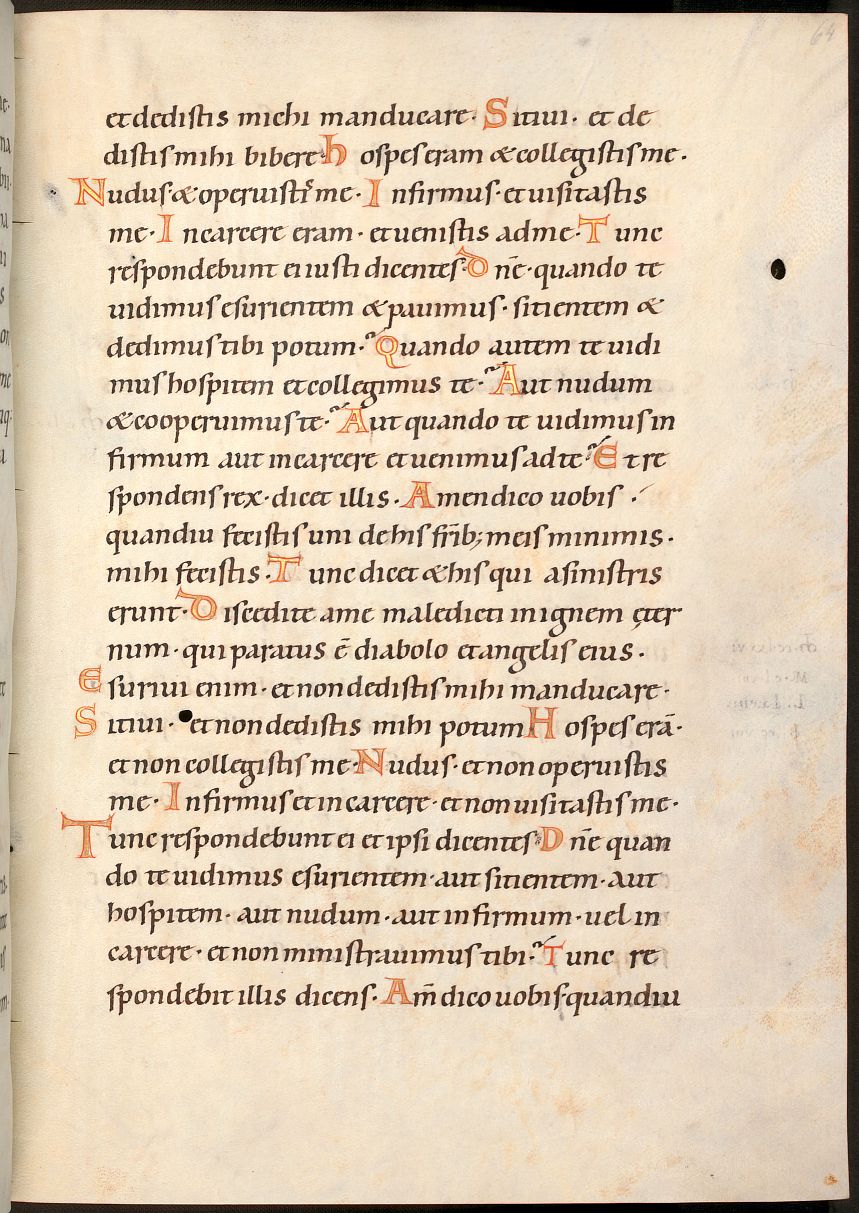 64
et dedistis michi manducare· Sitiui· et de
distis mihi bibere· hospes eram & collegistis me·
Nudus· & operuistis me· Infirmus· et uisitastis
me· In carcere eram· et uenistis ad me· Tunc
respondebunt ei iusti dicentes· Dn̄e· quando te
uidimus esurientem & pauimus· sitientem &
dedimus tibi potum· Quando autem te uidi
mus hospitem et collegimus te· Aut nudum
& cooperuimus te· Aut quando te uidimus in
firmum aut in carcere et uenimus ad te· Et re
spondens rex· dicet illis· Amen dico uobis·
quandiu fecistis uni de his fr̄ib; meis minimis·
mihi fecistis· Tunc dicet & his qui a sinistris
erunt· Discedite a me maledicti in ignem ęter
num· qui paratus ē diabolo et angelis eius·
Esuriui enim· et non dedistis mihi manducare·
Sitiui· et non dedistis mihi potum Hospes erā·
et non collegistis me· Nudus· et non operuistis
me· Infirmus et in carcere· et non uisitastis me·
Tunc respondebunt ei et ipsi dicentes· Dn̄e quan
do te uidimus esurientem· aut sitientem· aut
hospitem· aut nudum· aut infirmum· uel in
carcere· et non ministrauimus tibi· Tunc re
spondebit illis dicens· Am̄ dico uobis· quandiu